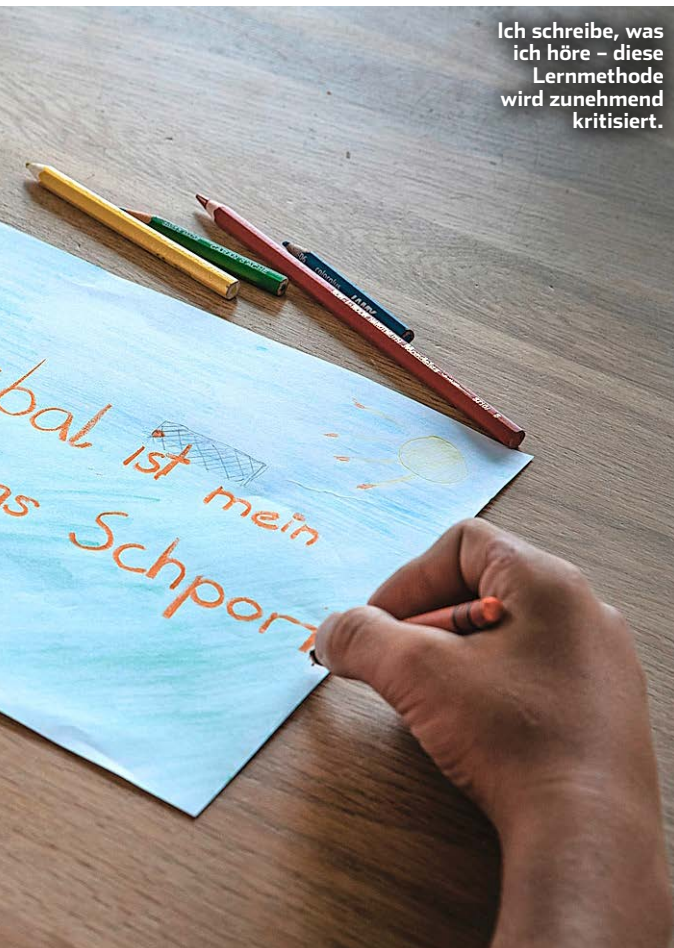 Ich schreibe, was
ich höre – diese
Lernmethode
wird zunehmend
kritisiert.
bal ist mein
s Schport